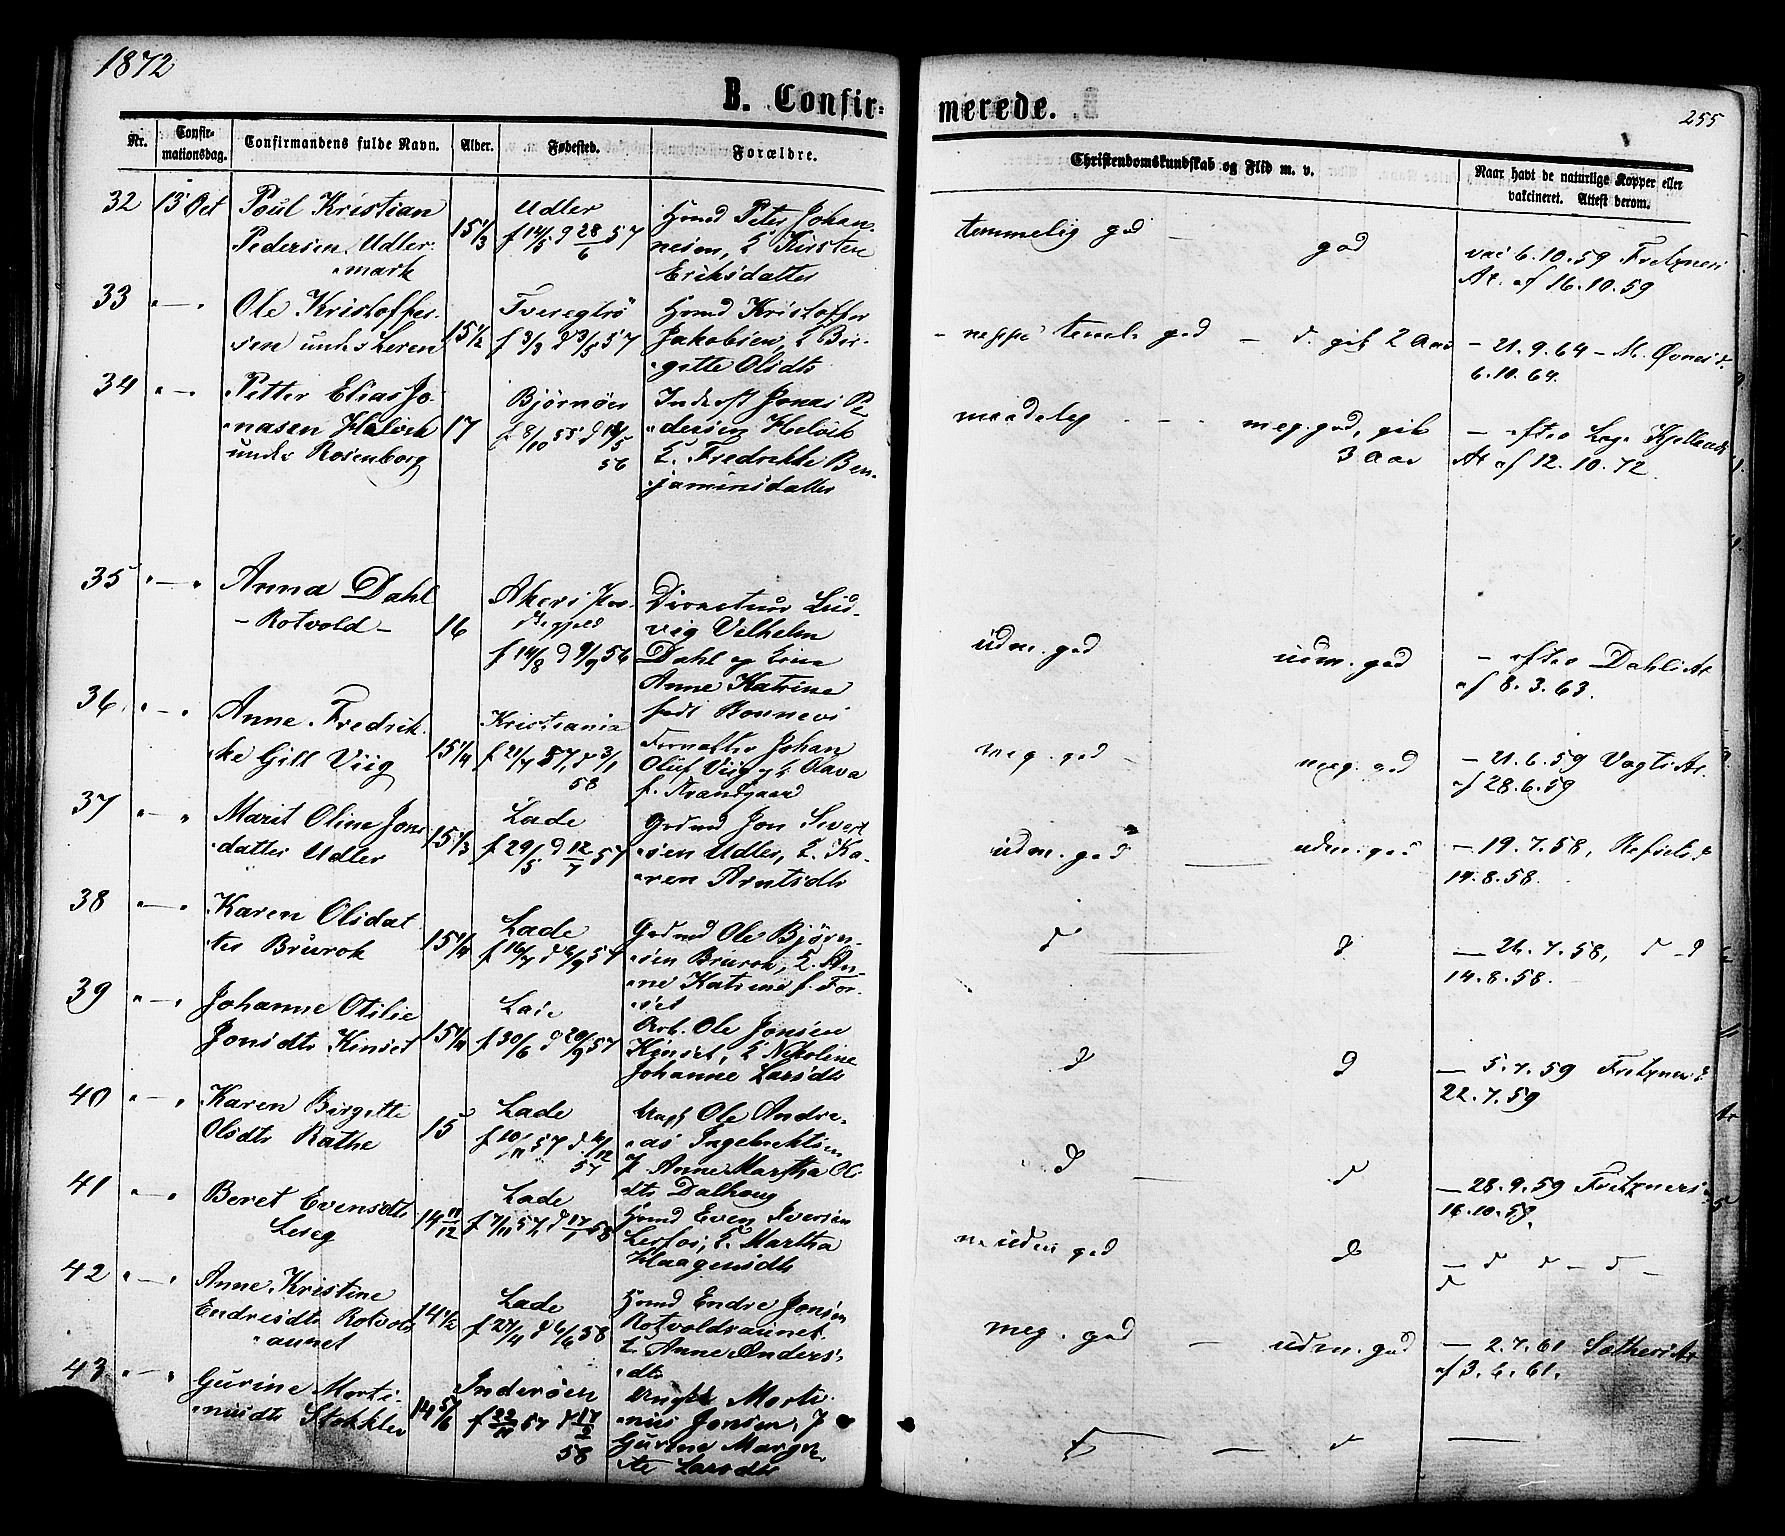 1872
B. Confirmerede.
255
Nr.
Confirmationsdag.
Confirmandens fulde Navn.
Alder.
Fødested.
Forældre.
Christendomskundskab og Flid m. v.
Naar havt de naturlige Kopper eller
vakcineret. Attest derom.
32 13 Oct Poul Kristian
Pedersen Udler
mark
15 1/3
Udler
f 14/5 d 28/6 57
Hmd Peter Johan
nesen, Kirsten
Eriksdatter
temmelig god - god
vac 6.10.59 Fritzners
At. af 16.10.59
33 " — " Ole Kristoffer
sen under Leren
15 1/2
Tveregtrø
f 3/3 d 3/5 57
Hmd Kristoffer
Jakobsen, Bir
gitte Olsdtr
neppe teml. god - d. gik 2 Aar
- 21.9.64 - M. Øvnes
6.10.64.
34 " — " Petter Elias Jo
nasen Halvik
under Rosenborg
17
Bjørnøer
f 8/10 55 d 18/5
56
Inderst Jonas Pe
dersen Helvik
Fredrikke Ben
jaminsdatter
maadelig - - meg. god, gik
3 Aar
- efter Læge
At af 12.10.72.
35 " — " Anna Dahl
- Rotvold -
16
Akers
f 14/8 d 9/9 56
Direkteur Lud
vig Vilhelm
Dahl og
Anne Katrine
født Bonnevi
udm. god udm. god
- efter Dahls At
af 8.3.63.
36 " — " Anne Fredrik
ke Gill Viig
15 1/4
Kristiania
f 21/7 57, d 3/1
58
Johan
Oluf Viig Olava
f. Strandgaard
meg. god - meg. god
- 21.6.59 Vogts At.
af 28.6.59
37 " — " Marit Oline Jons
datter Udler
15 1/3
Lade
f 29/5 d 12/7 57
Gdmd Jon Sivert
sen Udler, Ka
ren Arntsdtr
udm. god — udm. god
- 19.7.58, Refsets
14.8.58.
38 " — " Karen Olsdat
ter Brurok
15 1/4
Lade
f 16/7 d 6/9 57
Gdmd Ole Bjørn
sen Brurok, An
ne Katrine f. For
set
d d
— 26.7.58, d d
14.8.58.
39 " — " Johanne Otilie
Jonsdtr Kinset
15 1/4
Lade
f 30/6 d 20/9 57
Arb. Ole Jonsen
Kinset, Nikoline
Johanne Larsdtr
d d
— 5.7.59 Fritzner
22.7.59
40 " — " Karen Birgitte
Olsdtr Rathe
15
Lade
f 10/11 57 d 6/12
57
Ungk Ole Andre
as Ingebrektsen
P Anne Martha Ols
dtr Dalhaug
d — d
— 28.9.59 Fritzners
16.10.59.
41 " — " Beret Evensdtr
Lereg
14 11/12
Lade
f 7/11 57, d 17/1 58
Hmd Even Iversen
Lerfos, Martha
Haagensdtr
udm god d
— d d - d -
d
42 " — " Anne Kristine
Endresdtr Rotvolds
aunet
14 1/2
Lade
f 27/4 d 6/6 58
Hmd Endre Jonsen
Rotvoldsaunet
Anne Anders
dtr
meg. god - udm. god
— 2.7.61 Sæthers At
af 3.6.61.
43 " — " Gurine Marti
nusdtr Stokklev
14 5/6
Inderøen
f 22/11 57 d 17/2
58
Ungk Marti
nus Jonsen, P
Gurine Margre
te Larsdtr
d — d —